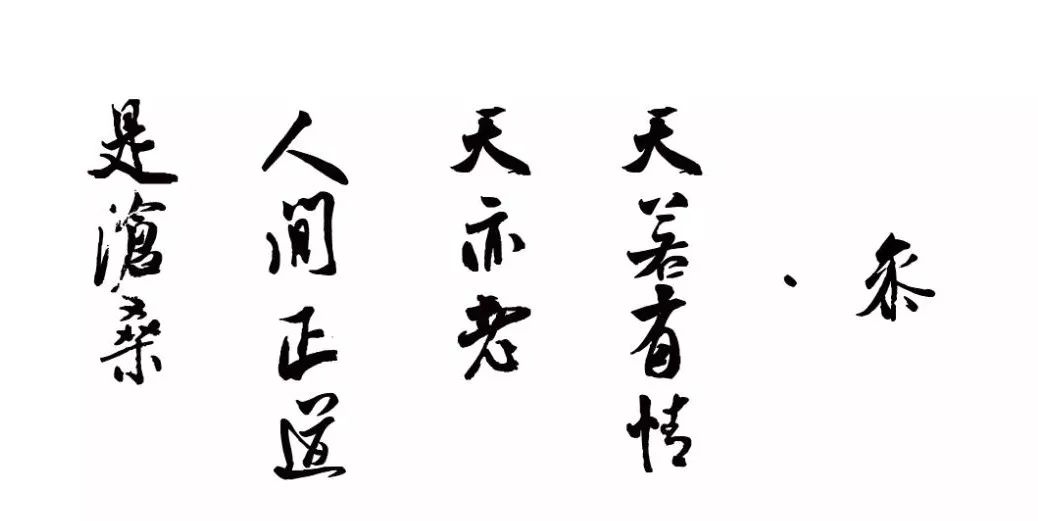 天若有情
天亦老
人间正道
是滄桑